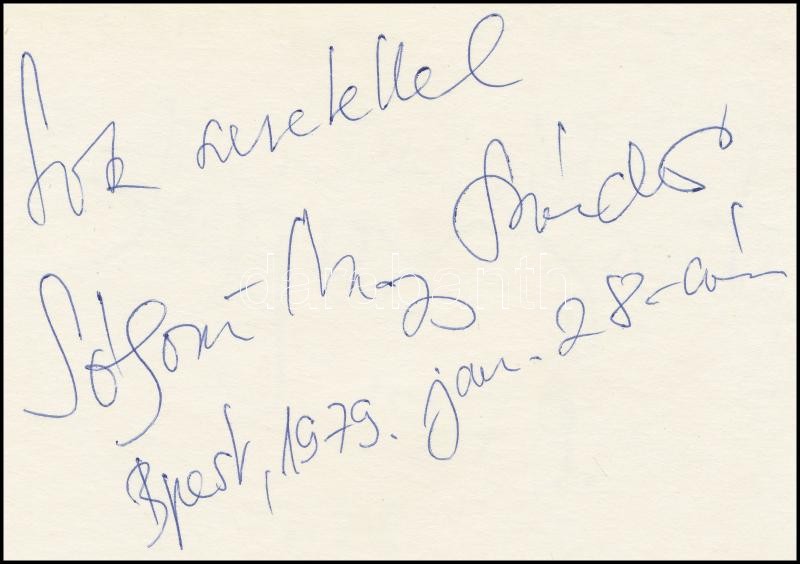 Sok szeretettel
Sólyom-Nagy Sándor
darabanth
Bpest, 1979. jan. 28-án